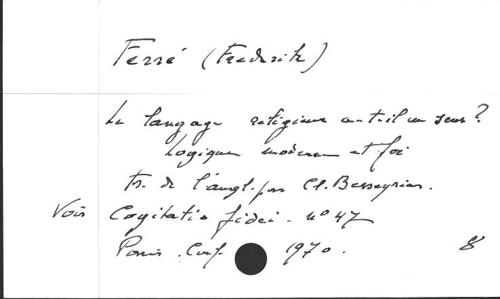 Ferré (Frederick)
Le langage religieux a-t-il un sens?
Logique moderne et foi
tr. de l'angl. par Cl. Besseyrias.
Voir Cogitatio fidei. n° 47
Paris. Cerf. 1970. 8